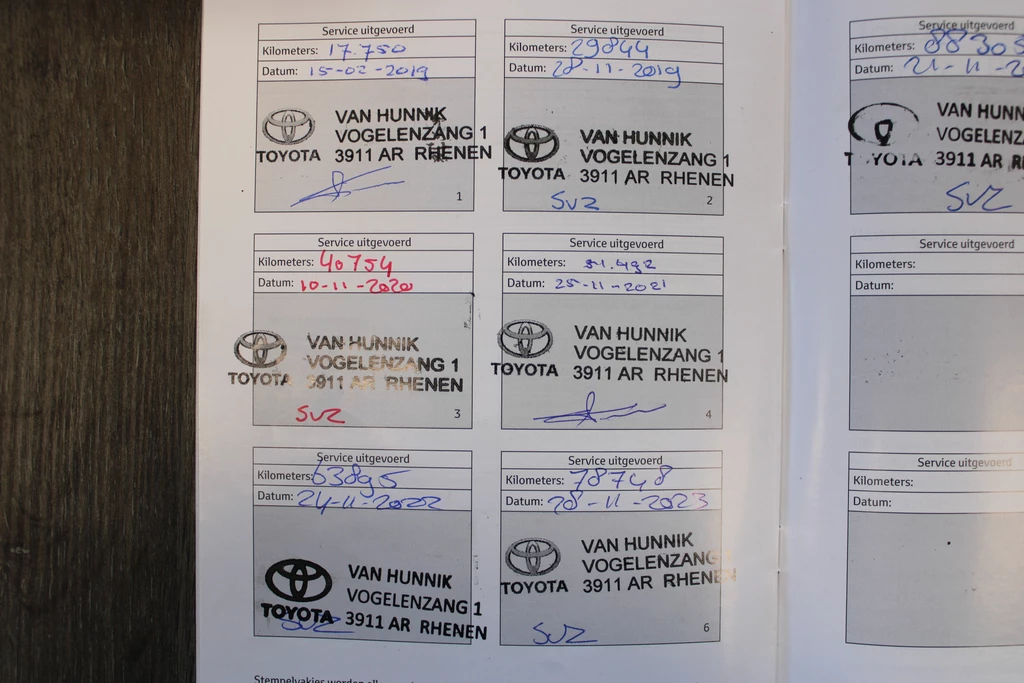 Service uitgevoerd
Kilometers: 17.750
Datum: 15-02-2019
TOYOTA
VAN HUNNIK
VOGELENZANG 1
3911 AR RHENEN
1
Service uitgevoerd
Kilometers: 29844
Datum: 28-11-2019
TOYOTA
VAN HUNNIK
VOGELENZANG 1
3911 AR RHENEN
SVZ
2
Service uitgevoerd
Kilometers: 40754
Datum: 10-11-2020
TOYOTA
VAN HUNNIK
VOGELENZANG 1
3911 AR RHENEN
SVZ
3
Service uitgevoerd
Kilometers: 51.492
Datum: 25-11-2021
TOYOTA
VAN HUNNIK
VOGELENZANG 1
3911 AR RHENEN
4
Service uitgevoerd
Kilometers: 63895
Datum: 24-11-2022
TOYOTA
VAN HUNNIK
VOGELENZANG 1
3911 AR RHENEN
SVZ
Service uitgevoerd
Kilometers: 78748
Datum: 28-11-2023
TOYOTA
VAN HUNNIK
VOGELENZANG
3911 AR RHENEN
SVZ
6
Service uitgevoerd
Kilometers: 88305
Datum: 21-11-2
TOYOTA
VAN HUNN
VOGELENZ
3911 AR R
SVZ
Service uitgevoerd
Kilometers:
Datum:
Service uitgevoerd
Kilometers:
Datum: